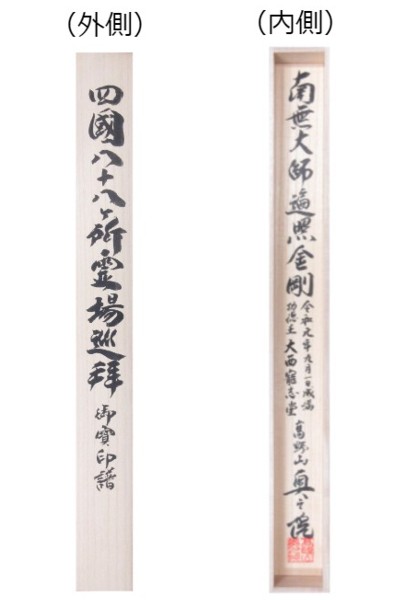 (外側)
四國八十八ヶ所霊場巡拝
御寶印譜
(内側)
南無大師遍照金剛
令和元年九月一日成満
功徳主 大西
高野山 奥之院